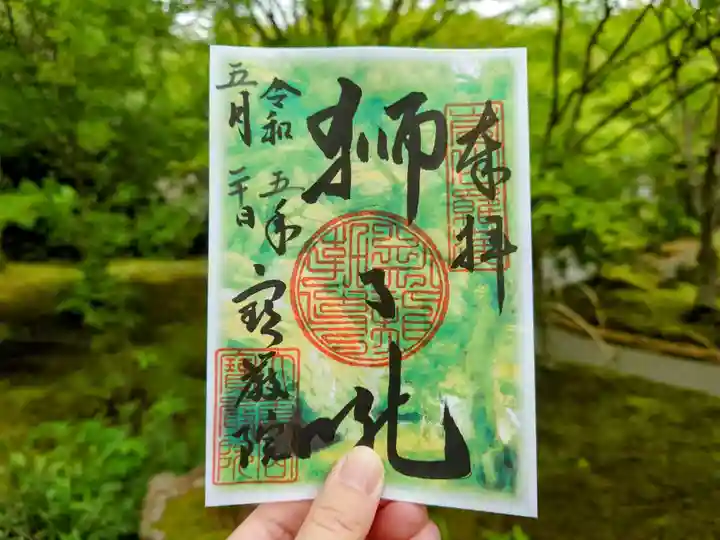 奉拝
獅子吼
令和五年
五月二十日
寳厳院